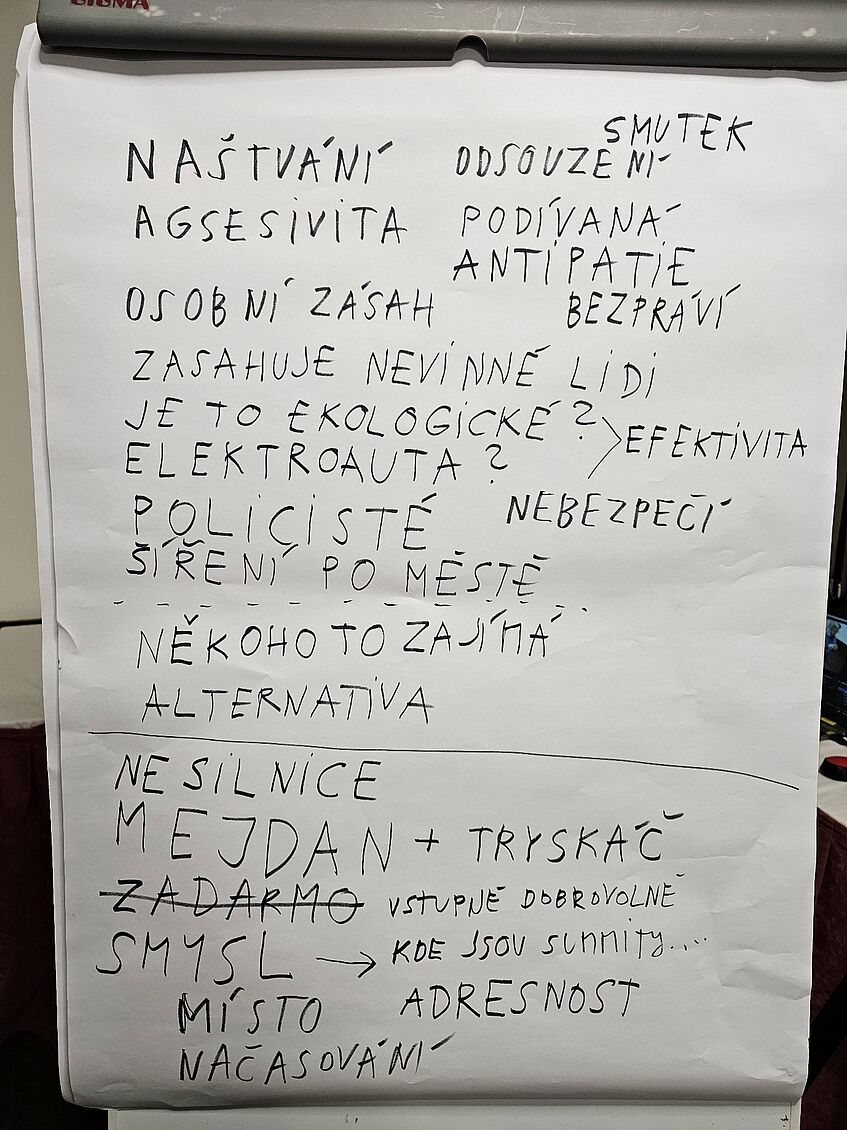 SIGMA
SMUTEK
NAŠTVÁNÍ ODSOUZENÍ
AGSESIVITA PODÍVANÁ
ANTIPATIE
OSOBNÍ ZÁSAH BEZPRÁVÍ
ZASAHUJE NEVINNÉ LIDI
JE TO EKOLOGICKÉ?
EFEKTIVITA
ELEKTROAUTA?
POLICISTÉ NEBEZPEČÍ
ŠÍŘENÍ PO MĚSTĚ
NĚKOHO TO ZAJÍMÁ
ALTERNATIVA
NE SILNICE
MEJDAN + TRYSKÁČ
ZADARMO VSTUPNÉ DOBROVOLNÉ
SMYSL → KDE JSOU SUMMITY....
MÍSTO ADRESNOST
NAČASOVÁNÍ